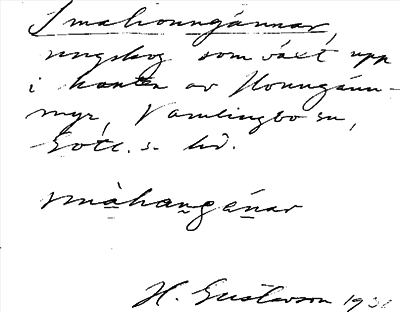 Smahonngännar,
ungskog som växt upp
i kanten av Honngänn-
myr, Vamlingbo sn,
Gotl. s. hd.
smàhangänar
H. Gustavson 193